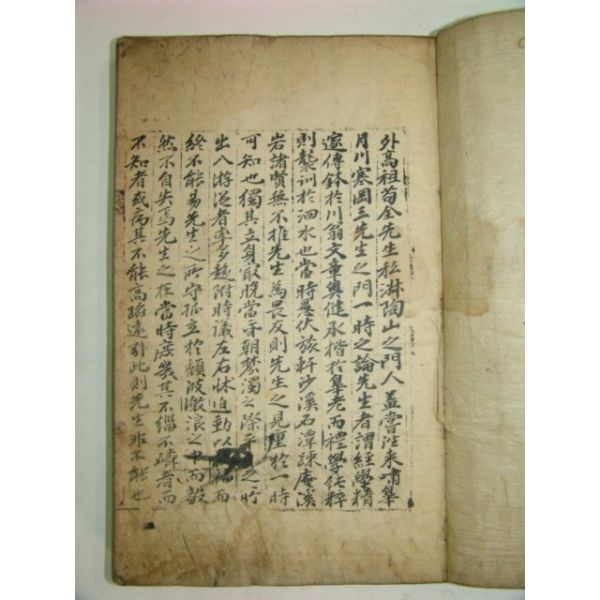 外高祖苟全先生私淋陶山之門人盖嘗往来嘯皐
月川寒岡三先生之門一時之論先生者謂經學精
邃傳鉢於川翁文章奧健承楷於皐老而禮學純粹
則襲訓於泗水也當時愚伏旅軒沙溪石潭踈庵溪
岩諸賢無不推先生為畏友則先生之見重於一時
可知也獨其立身最晩當昏朝禁濁之際
出入游從者率多趍附時議左右怵迫動以禍而
終不能易先生之所守孤立於頹波激浪之中而毅
然不自失焉先生之在當時庶幾其不緇不磷者而
不知者或病其不能高蹈遠引此則先生非不能也